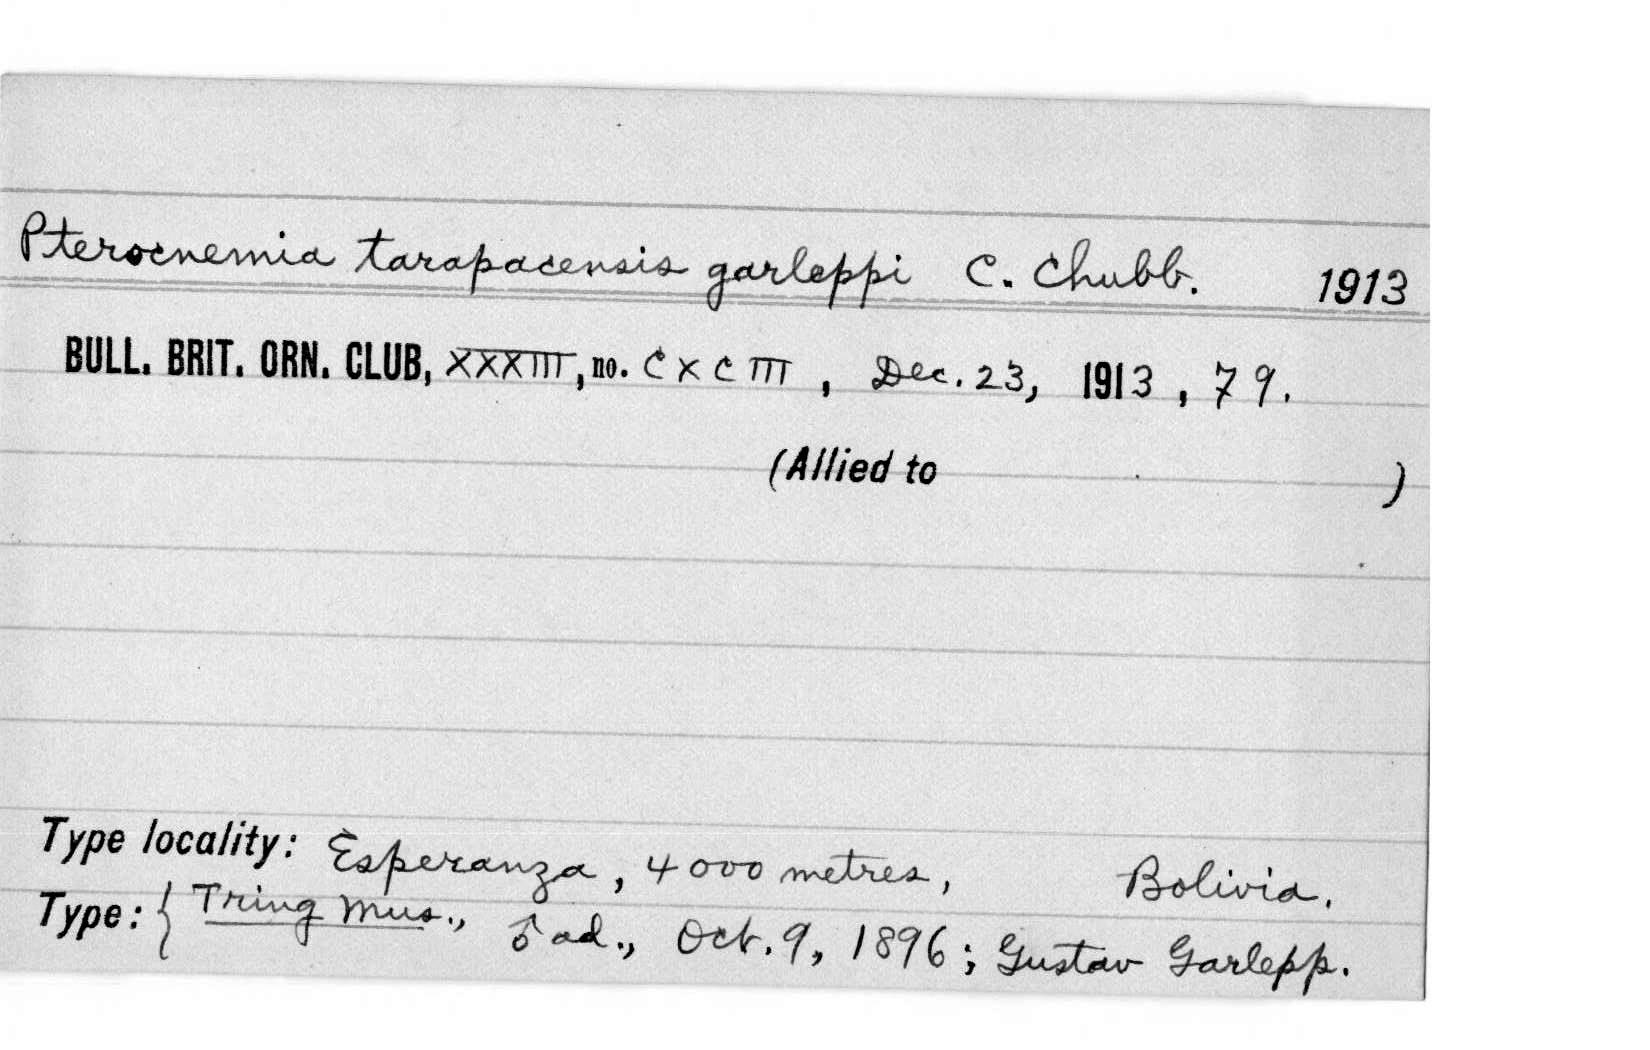 Pterocnemia tarapacensis garleppi C. Chubb. 1913
BULL. BRIT. ORN. CLUB, XXXIII, no. CXCIII, Dec. 23, 1913, 79.
(Allied to )
Type locality: Esperanza, 4000 metres, Bolivia.
Type: { Tring Mus., ♂ ad., Oct. 9, 1896; Gustav Garlepp.